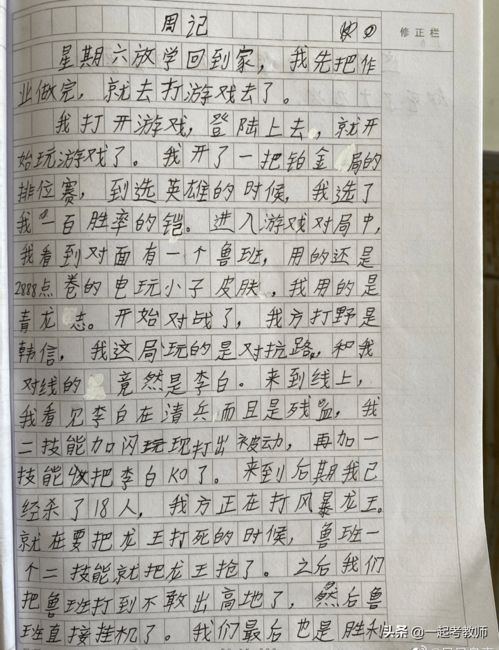 周记
修正栏
星期六放学回到家，我先把作
业做完，就去打游戏去了。
我打开游戏，登陆上去，就开
始玩游戏了。我开了一把铂金局的
排位赛，到选英雄的时候，我选了
我一百胜率的铠。进入游戏对局中，
我看到对面有一个鲁班，用的还是
2888点卷的电玩小子皮肤，我用的是
青龙志。开始对战了，我方打野是
韩信，我这局玩的是对抗路，和我
对线的竟然是李白。来到线上，
我看见李白在清兵而且是残血，我
二技能加闪现打出被动，再加一
技能就把李白KO了。来到后期我已
经杀了18人，我方正在打风暴龙王。
就在要把龙王打死的时候，鲁班一
个二技能就把龙王抢了。之后我们
把鲁班打到不敢出高地了，然后鲁
班直接挂机了。我们最后也是胜利
头条 @一起考教师